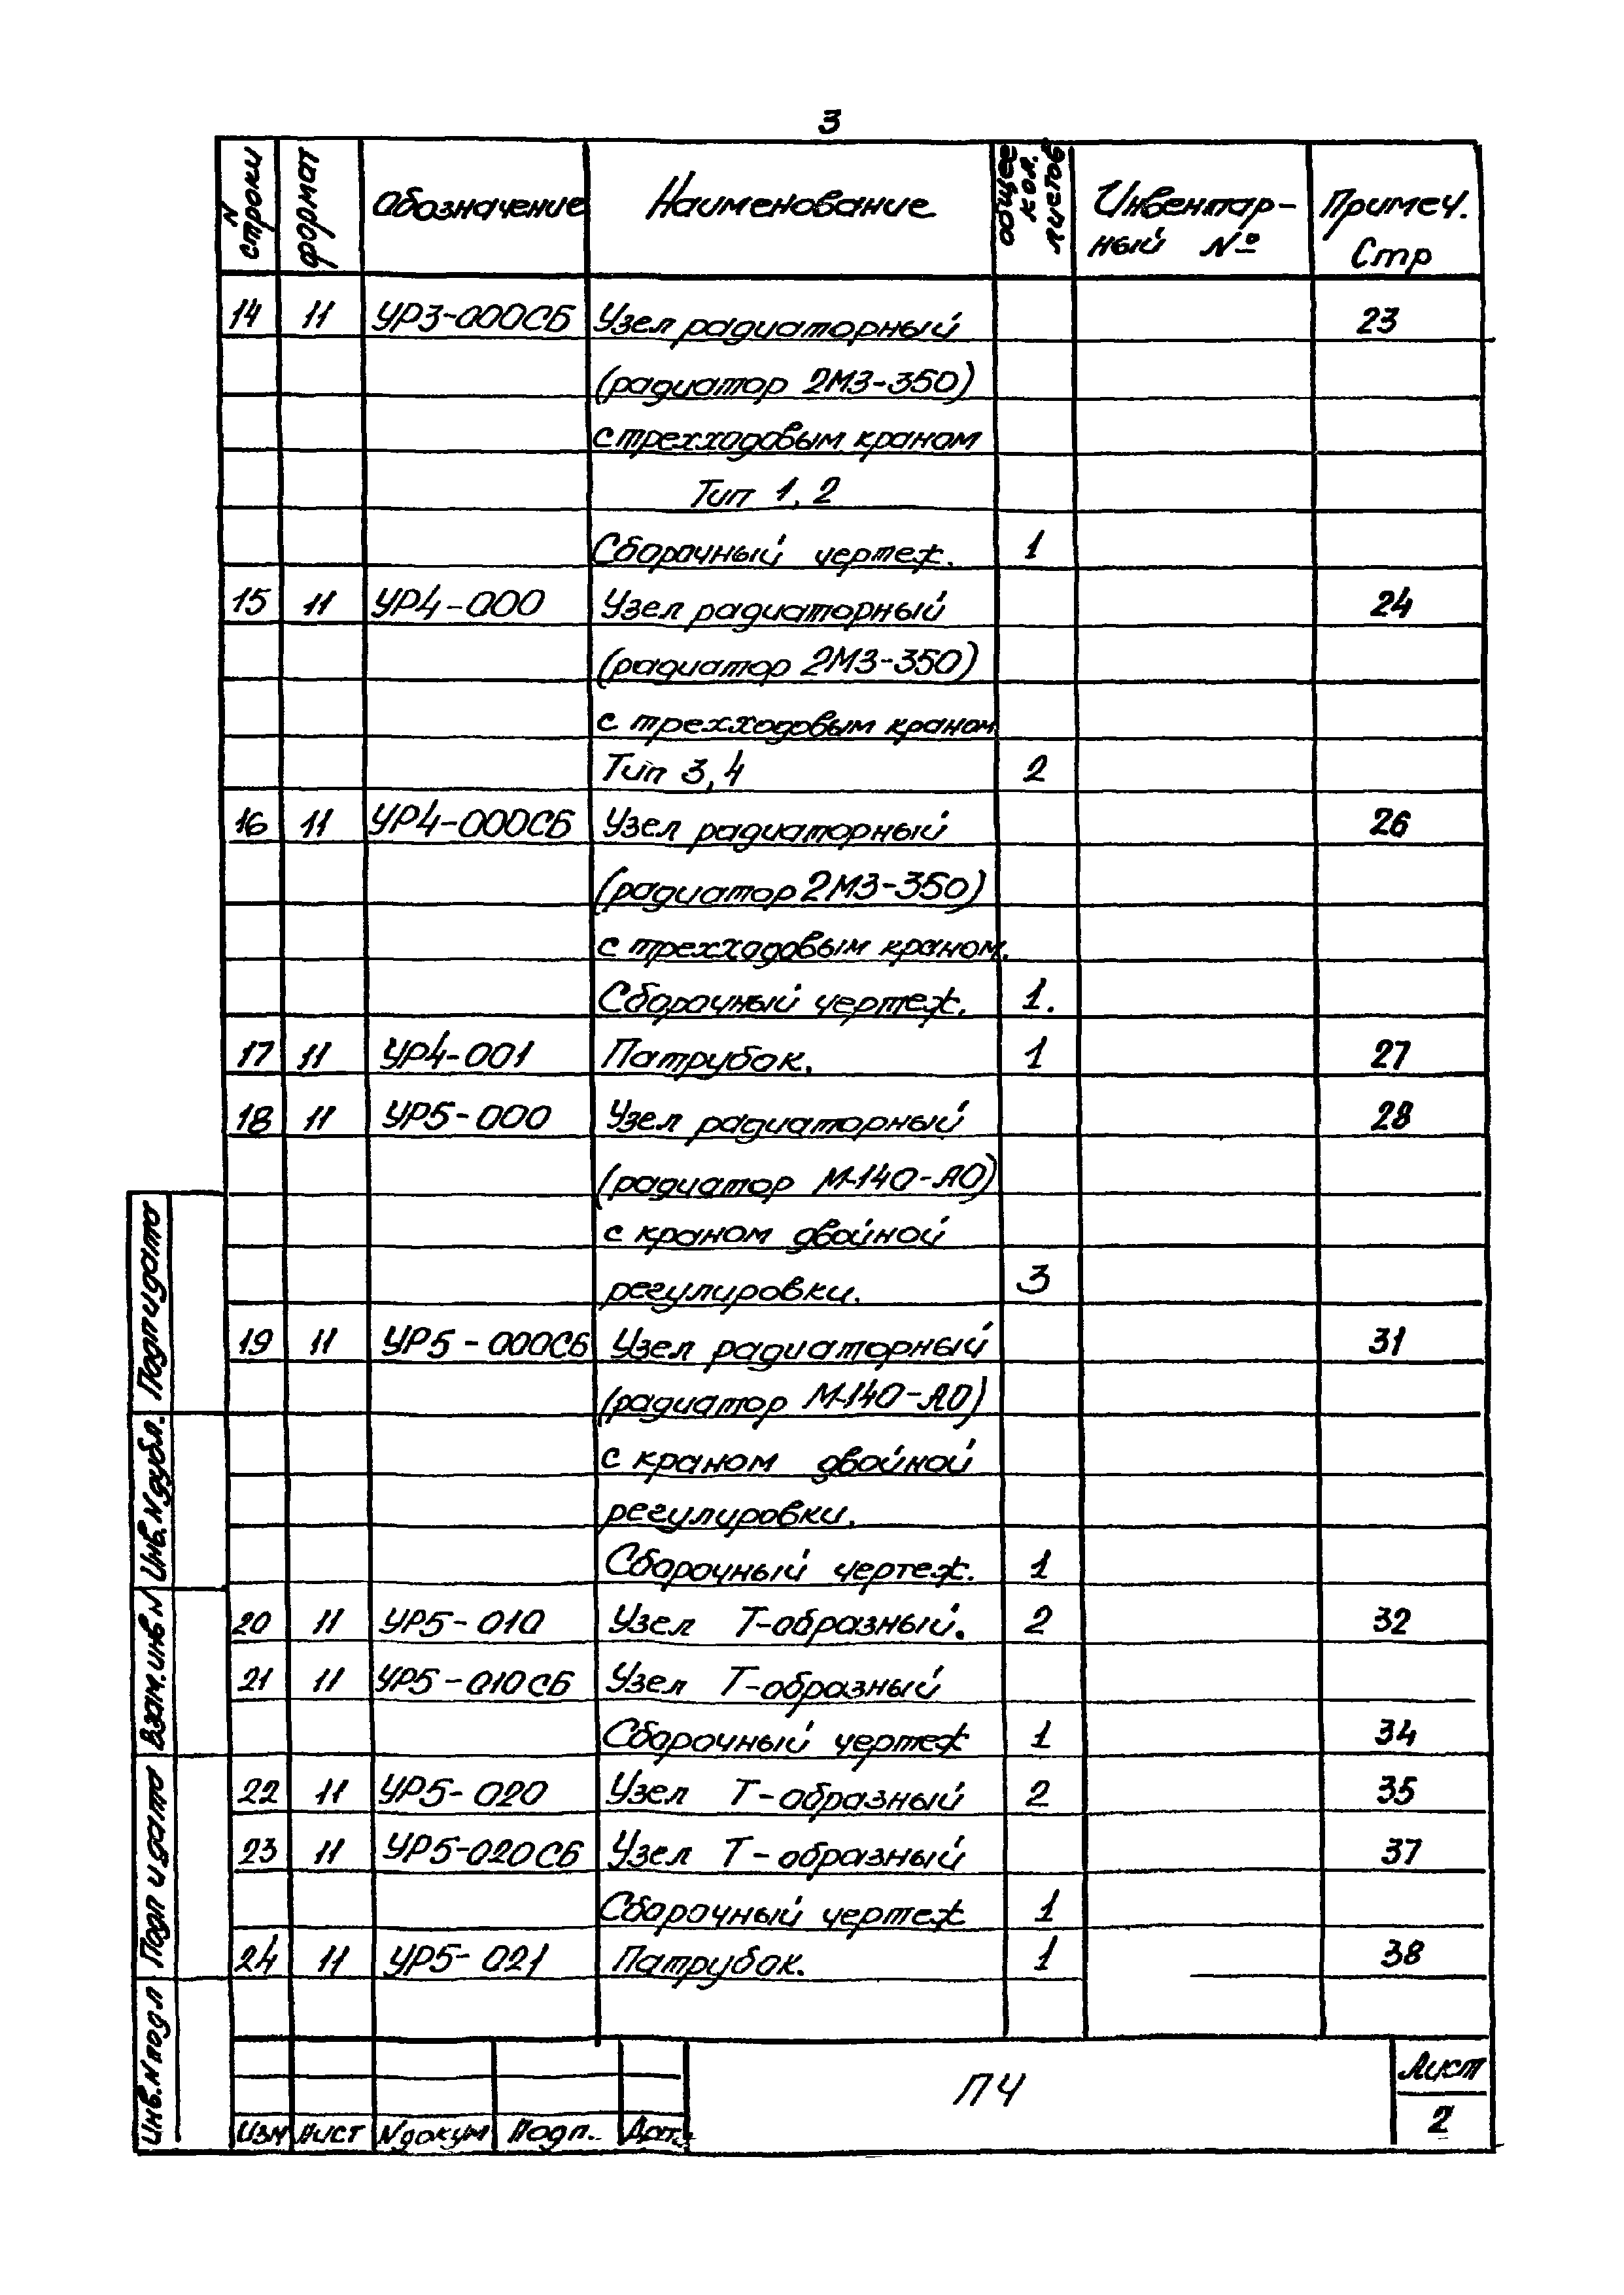 3
N строки формат Обозначение Наименование общее кол. листов Инвентарный № Примеч. Стр
14 11 УР3-000СБ Узел радиаторный 23
(радиатор 2МЗ-350)
с трехходовым краном
Тип 1, 2
Сборочный чертеж. 1
15 11 УР4-000 Узел радиаторный 24
(радиатор 2МЗ-350)
с трехходовым краном
Тип 3, 4 2
16 11 УР4-000СБ Узел радиаторный 26
(радиатор 2МЗ-350)
с трехходовым краном.
Сборочный чертеж. 1.
17 11 УР4-001 Патрубок. 1 27
18 11 УР5-000 Узел радиаторный 28
(радиатор М-140-АО)
с краном двойной
регулировки. 3
19 11 УР5-000СБ Узел радиаторный 31
(радиатор М-140-АО)
с краном двойной
регулировки.
Сборочный чертеж. 1
20 11 УР5-010 Узел Т-образный. 2 32
21 11 УР5-010СБ Узел Т-образный
Сборочный чертеж 1 34
22 11 УР5-020 Узел Т-образный 2 35
23 11 УР5-020СБ Узел Т-образный 37
Сборочный чертеж 1
24 11 УР5-021 Патрубок. 1 38
Подп и дата
Инв. N дубл.
Взам. инв N
Подп и дата
Инв. N подл
Изм Лист N докум Подп. Дата
ПЧ
Лист
2